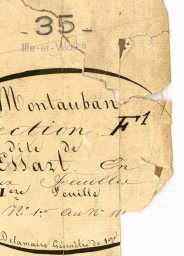 - 35 -
Ille-et-Vilaine
Montauban
ection F1
dite de
Essart. En
Feuilles
1ère Feuille
Delamaire Géomètre de 1re